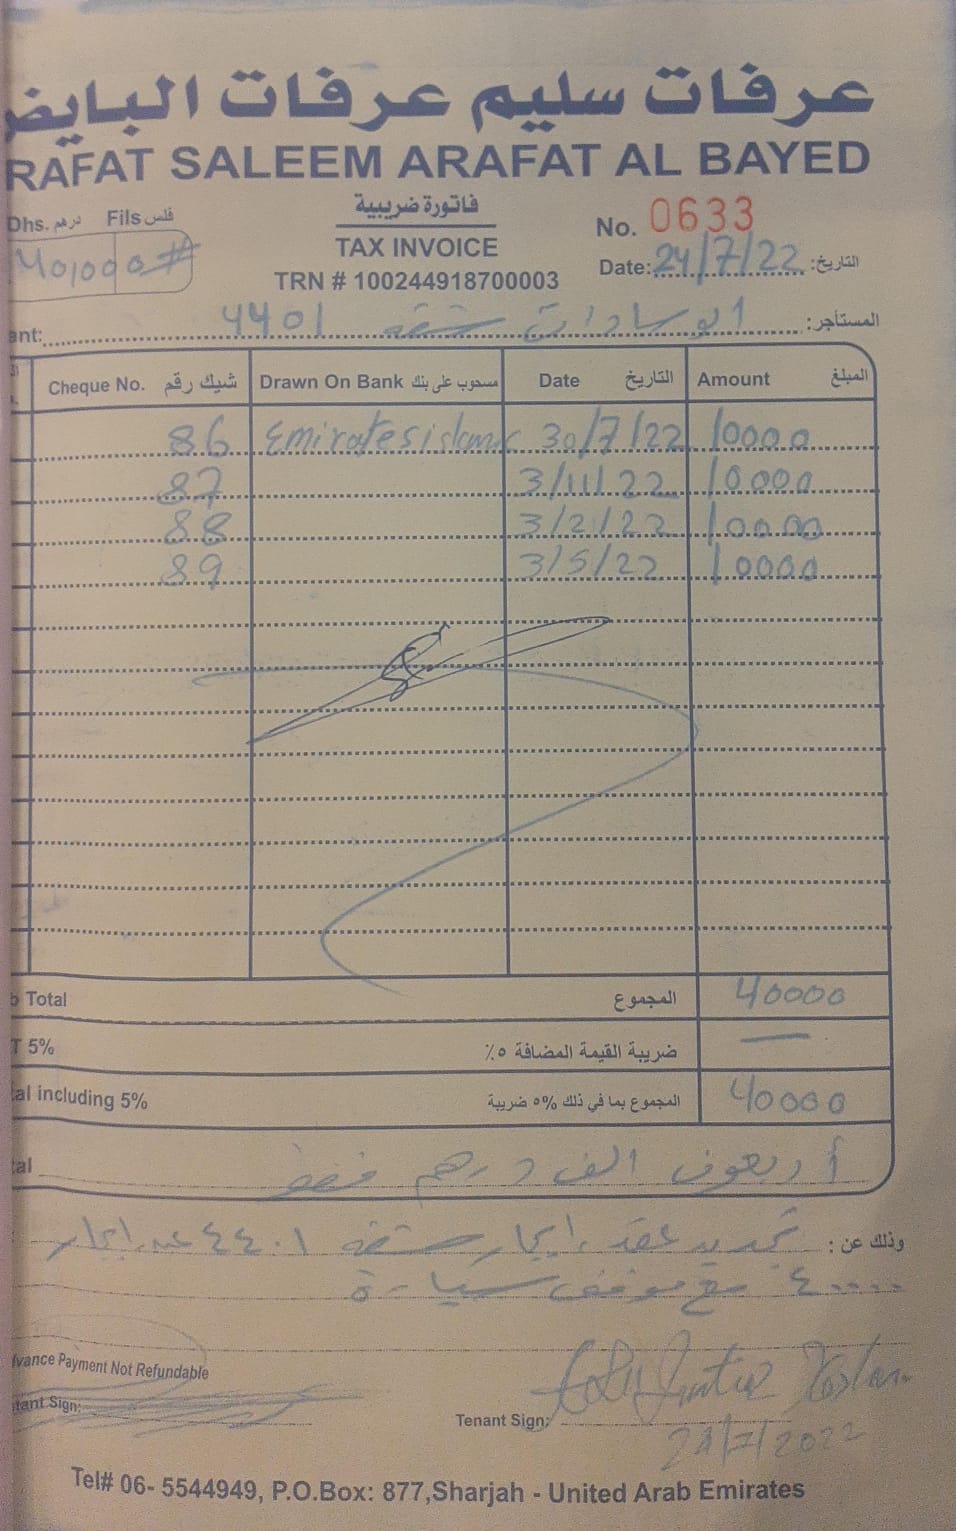 عرفات سليم عرفات البايض
RAFAT SALEEM ARAFAT AL BAYED
Dhs. درهم Fils فلس
40,000#
فاتورة ضريبية
TAX INVOICE
TRN # 100244918700003
No. 0633
Date: 24/7/22 التاريخ:
ant: 4401 شقة المستأجر:
Cheque No. شيك رقم Drawn On Bank مسحوب على بنك Date التاريخ Amount المبلغ
86 Emirates islamic 30/7/22 10000
87 3/11/22 10000
88 3/2/22 10000
89 3/5/22 10000
b Total المجموع 40000
T 5% ضريبة القيمة المضافة ٥٪ —
tal including 5% المجموع بما في ذلك ٥% ضريبة 40000
tal أربعون الف درهم فقط
وذلك عن: تجديد عقد ايجار شقة ٤٤٠١ ايجار
٤٠٠٠٠ مع موقف سيارة
dvance Payment Not Refundable
tant Sign:
Tenant Sign:
24/7/2022
Tel# 06- 5544949, P.O.Box: 877,Sharjah - United Arab Emirates